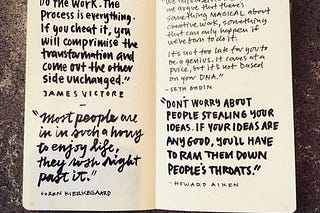 DO THE WORK. THE
PROCESS IS EVERYTHING.
IF YOU CHEAT IT, YOU
WILL COMPRIMISE THE
TRANSFORMATION AND
COME OUT THE OTHER
SIDE UNCHANGED."
JAMES VICTORE
"Most people are
in in such a hurry
to enjoy life,
they rush right
past it."
- SOREN KIERKEGAARD
we argue that there's
something MAGICAL about
creative work, something
that can only happen if
we're born to do it.
It's not too late for you to
be a genius. It comes at a
price, but it's not based
on your DNA."
- SETH GODIN
"DON'T WORRY ABOUT
PEOPLE STEALING YOUR
IDEAS. IF YOUR IDEAS ARE
ANY GOOD, YOU'LL HAVE
TO RAM THEM DOWN
PEOPLE'S THROATS."
- HOWARD AIKEN